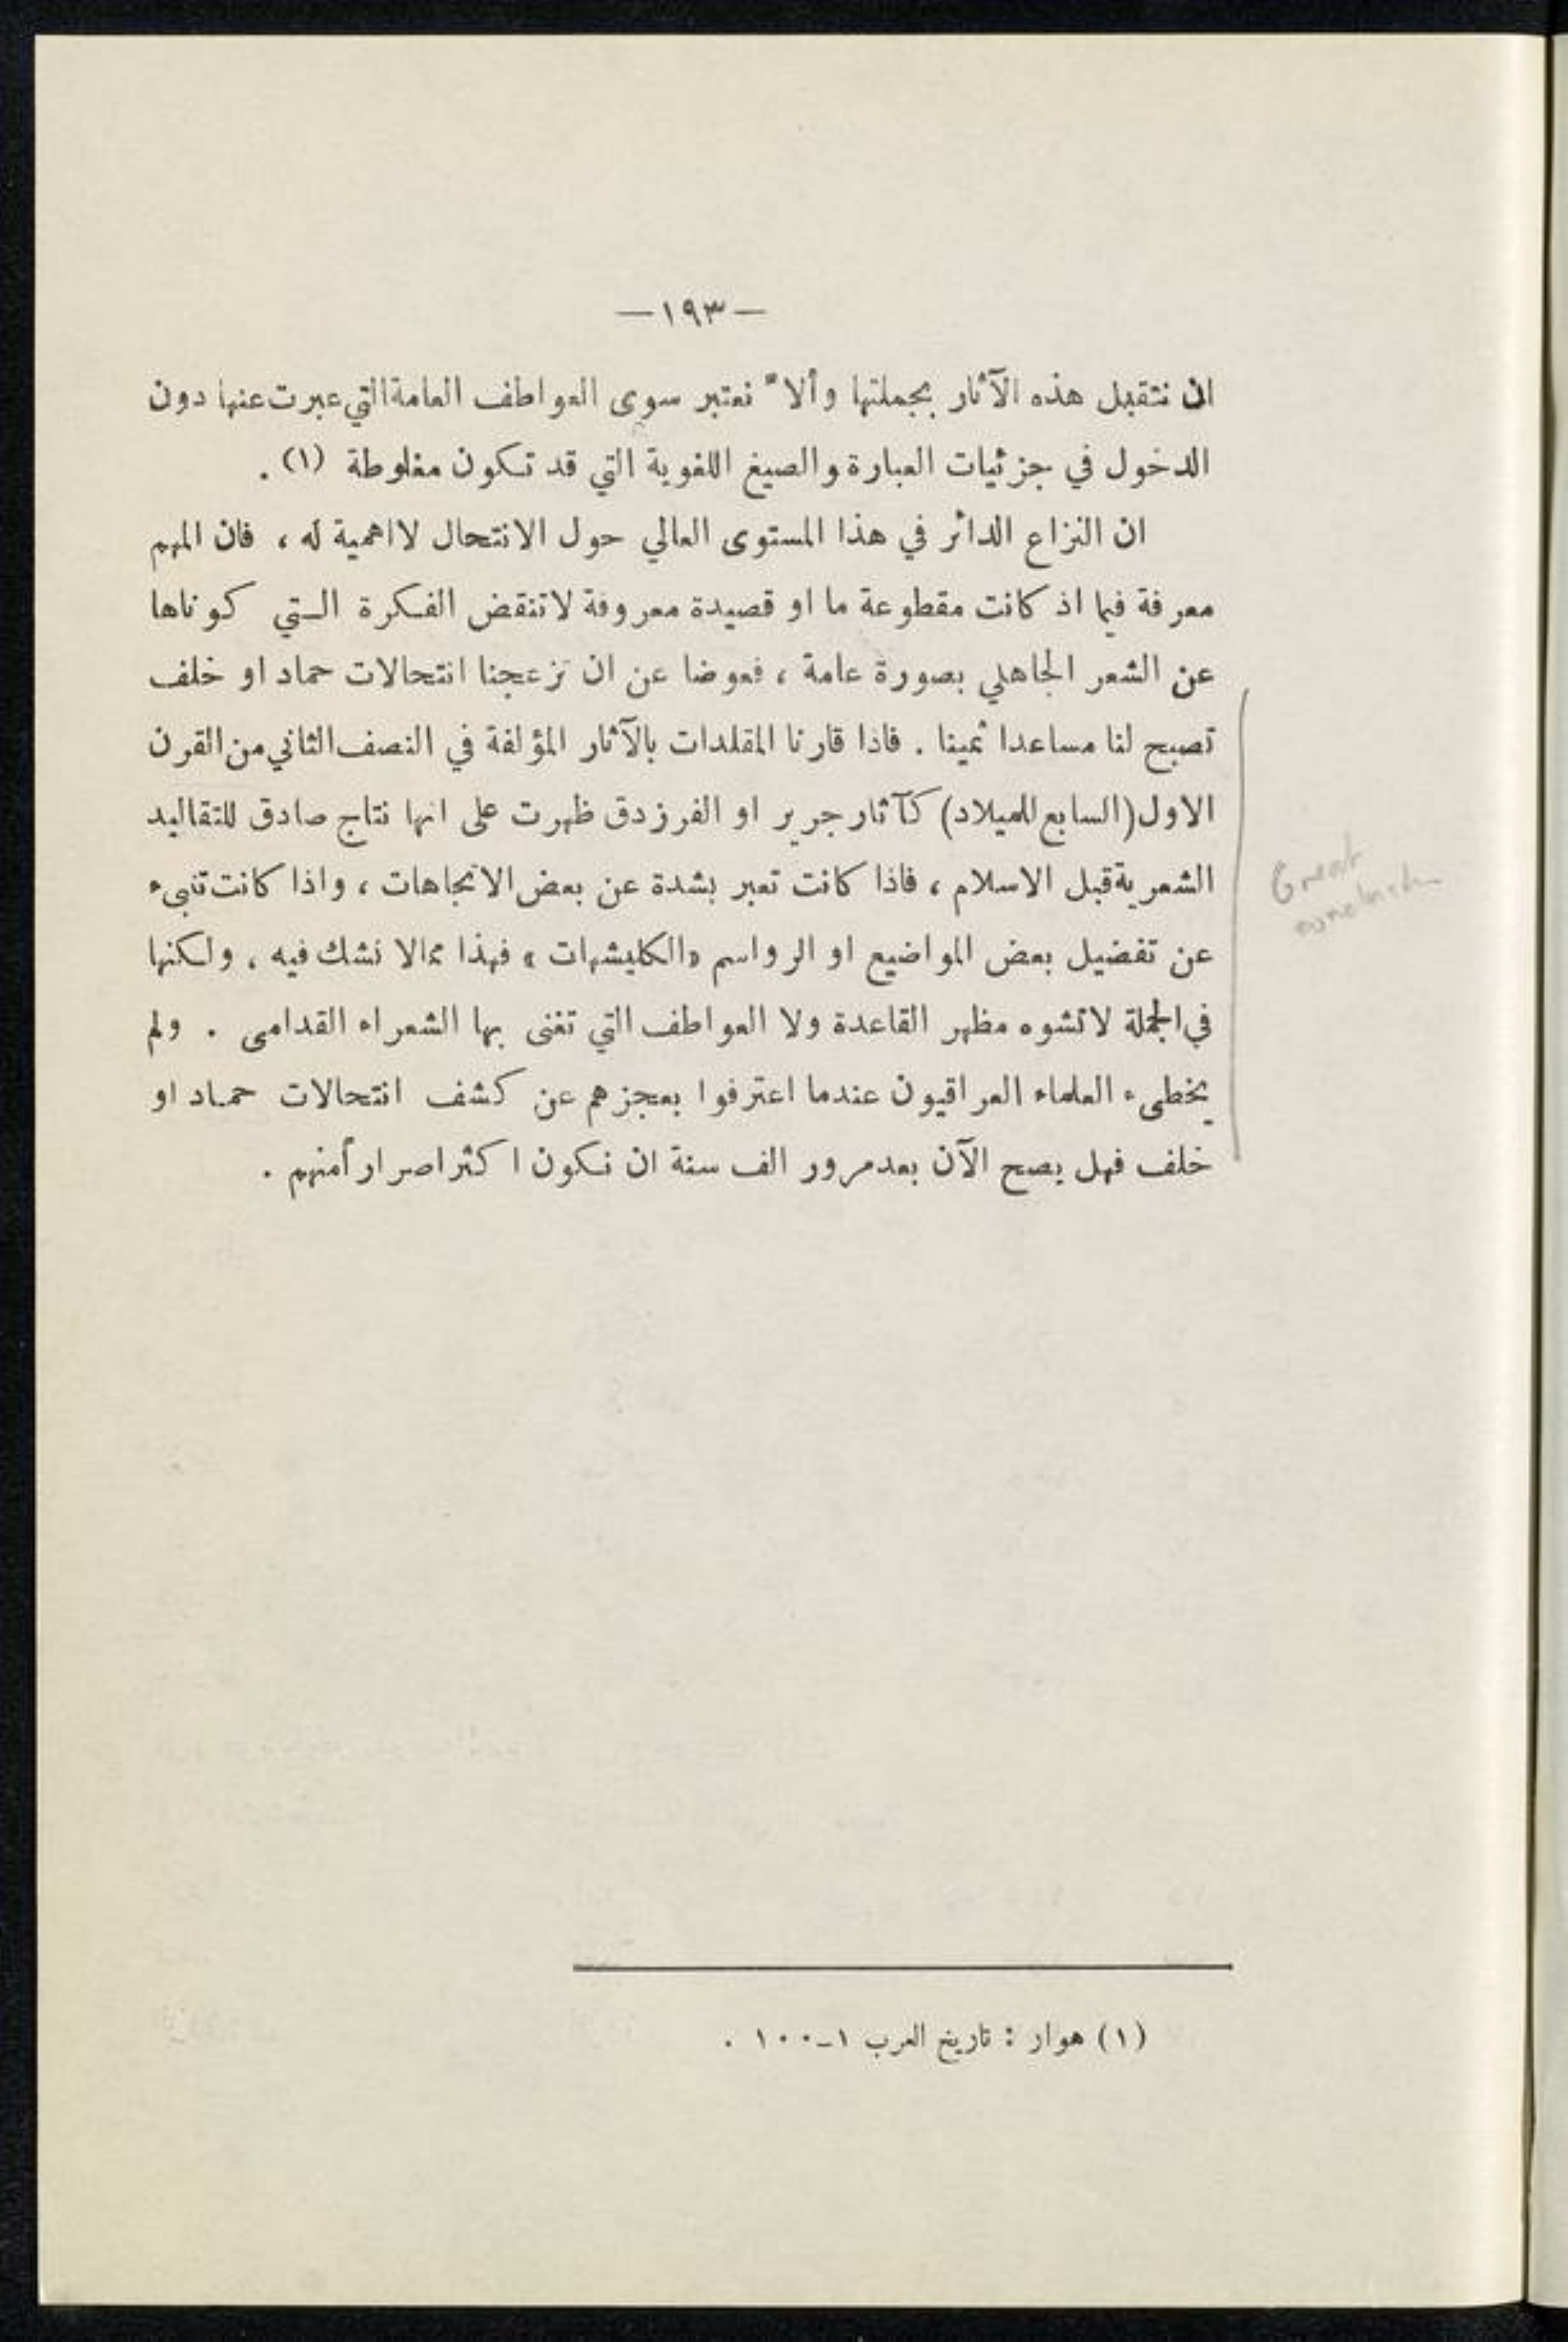 —١٩٣—
ان نتقبل هذه الآثار بجملتها وألا ّ نعتبر سوى العواطف العامة التي عبرت عنها دون
الدخول في جزئيات العبارة والصيغ اللغوية التي قد تكون مغلوطة (١) .
ان النزاع الدائر في هذا المستوى العالي حول الانتحال لا اهمية له ، فان المهم
معرفة فيما اذ كانت مقطوعة ما او قصيدة معروفة لا تنقض الفكرة الـتي كوناها
عن الشعر الجاهلي بصورة عامة ، فعوضا عن ان تزعجنا انتحالات حماد او خلف
تصبح لنا مساعدا ثمينا . فاذا قارنا المقلدات بالآثار المؤلفة في النصف الثاني من القرن
الاول (السابع للميلاد) كآثار جرير او الفرزدق ظهرت على انها نتاج صادق للتقاليد
الشعرية قبل الاسلام ، فاذا كانت تعبر بشدة عن بعض الاتجاهات ، واذا كانت تنبىء
عن تفضيل بعض المواضيع او الرواسم «الكليشهات» فهذا مما لا نشك فيه . ولكنها
في الجملة لا تشوه مظهر القاعدة ولا العواطف التي تغنى بها الشعراء القدامى . ولم
يخطىء العلماء العراقيون عندما اعترفوا بعجزهم عن كشف انتحالات حماد او
خلف فهل يصح الآن بعد مرور الف سنة ان نكون اكثر اصراراً منهم .
Great
(١) هوار : تاريخ العرب ١ــ١٠٠ .